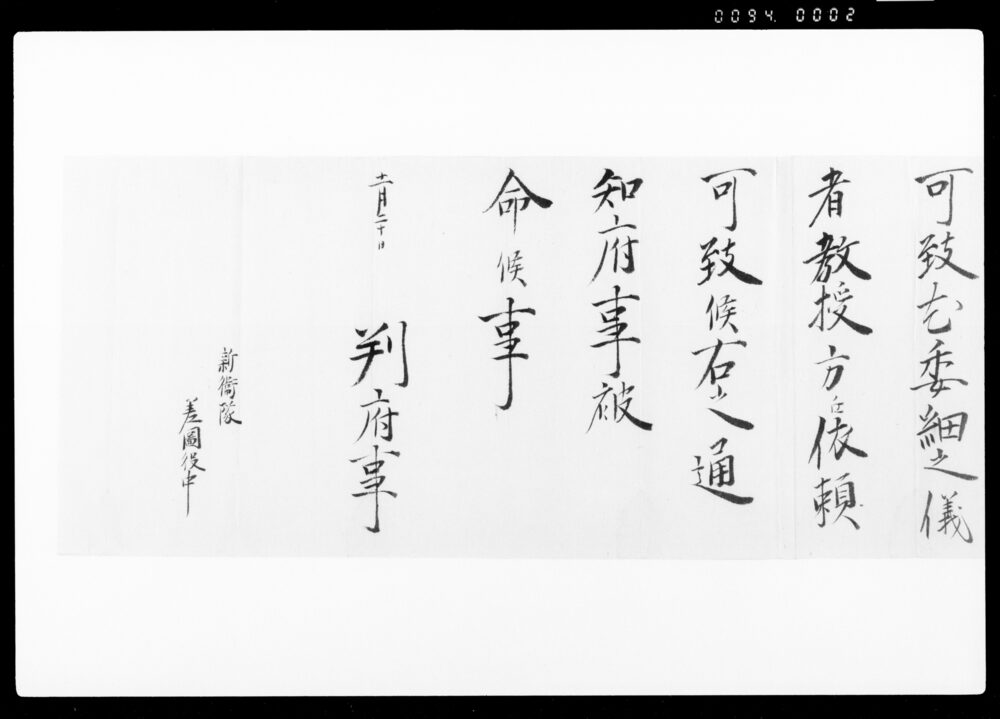 0094. 0002
可致乞委細之儀
者教授方江依頼
可致候右之通
知府事被
命候事
十一月二十日
判府事
新衞隊
差圖役中